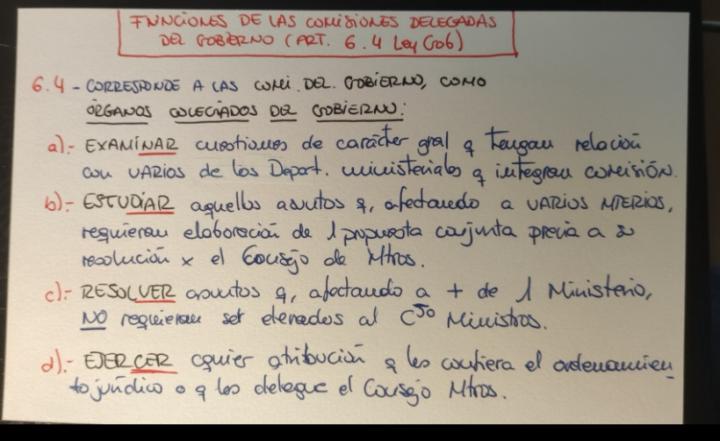 FUNCIONES DE LAS COMISIONES DELEGADAS
DEL GOBIERNO (ART. 6.4 Ley Gob)
6.4 - CORRESPONDE A LAS COMI. DEL. GOBIERNO, COMO
ÓRGANOS COLEGIADOS DEL GOBIERNO:
a).- EXAMINAR cuestiones de carácter gral q tengan relación
con VARIOS de los Depart. ministeriales q integran COMISIÓN.
b).- ESTUDIAR aquellos asuntos q, afectando a VARIOS MTERIOS,
requieran elaboración de 1 propuesta conjunta previa a su
resolución x el Consejo de Mtros.
c).- RESOLVER asuntos q, afectando a + de 1 Ministerio,
NO requieran ser elevados al Cjo Ministros.
d).- EJERCER cquier atribución q les confiera el ordenamien
to jurídico o q les delegue el Consejo Mtros.